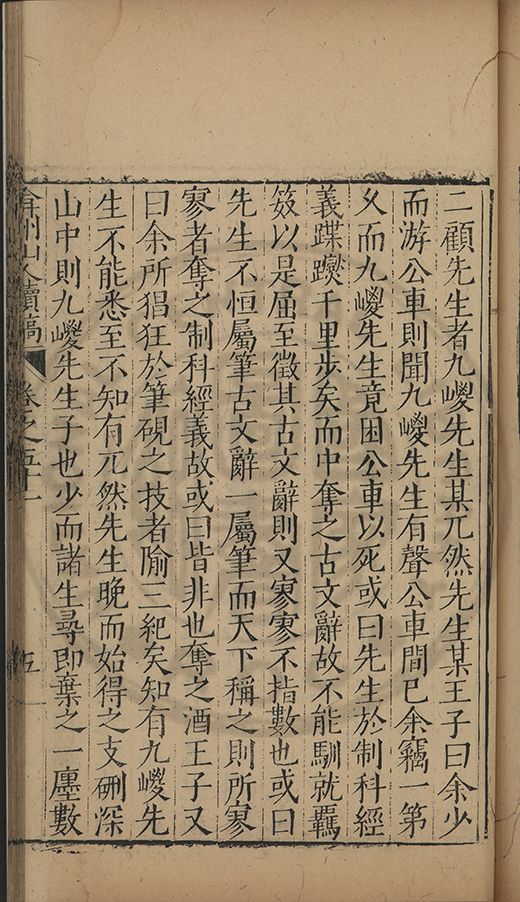 二顧先生者九嵕先生某兀然先生某王子曰余少
而游公車則聞九嵕先生有聲公車間巳余竊一第
乆而九嵕先生竟困公車以死或曰先生於制科經
義蹀躞千里步矣而中奪之古文辭故不能馴就羈
筴以是屈至徵其古文辭則又寥寥不指數也或曰
先生不恒屬筆古文辭一屬筆而天下稱之則所寥
寥者奪之制科經義故或曰皆非也奪之酒王子又
曰余所猖狂於筆硯之技者隃三紀矣知有九嵕先
生不能悉至不知有兀然先生晚而始得之支硎深
山中則九嵕先生子也少而諸生尋即棄之一廛數
弇州山人續稿
卷之五十一
五